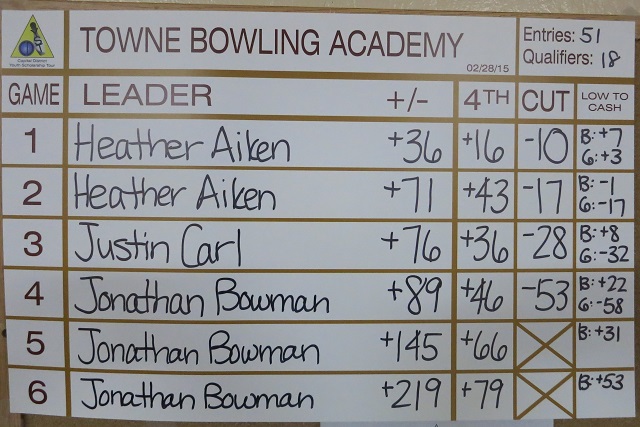 Capital District
Youth Scholarship Tour
TOWNE BOWLING ACADEMY
02/28/15
Entries: 51
Qualifiers: 18
GAME LEADER +/- 4TH CUT LOW TO CASH
1 Heather Aiken +36 +16 -10 B: +7
G: +3
2 Heather Aiken +71 +43 -17 B: -1
G: -17
3 Justin Carl +76 +36 -28 B: +8
G: -32
4 Jonathan Bowman +89 +46 -53 B: +22
G: -58
5 Jonathan Bowman +145 +66 B: +31
6 Jonathan Bowman +219 +79 B: +53